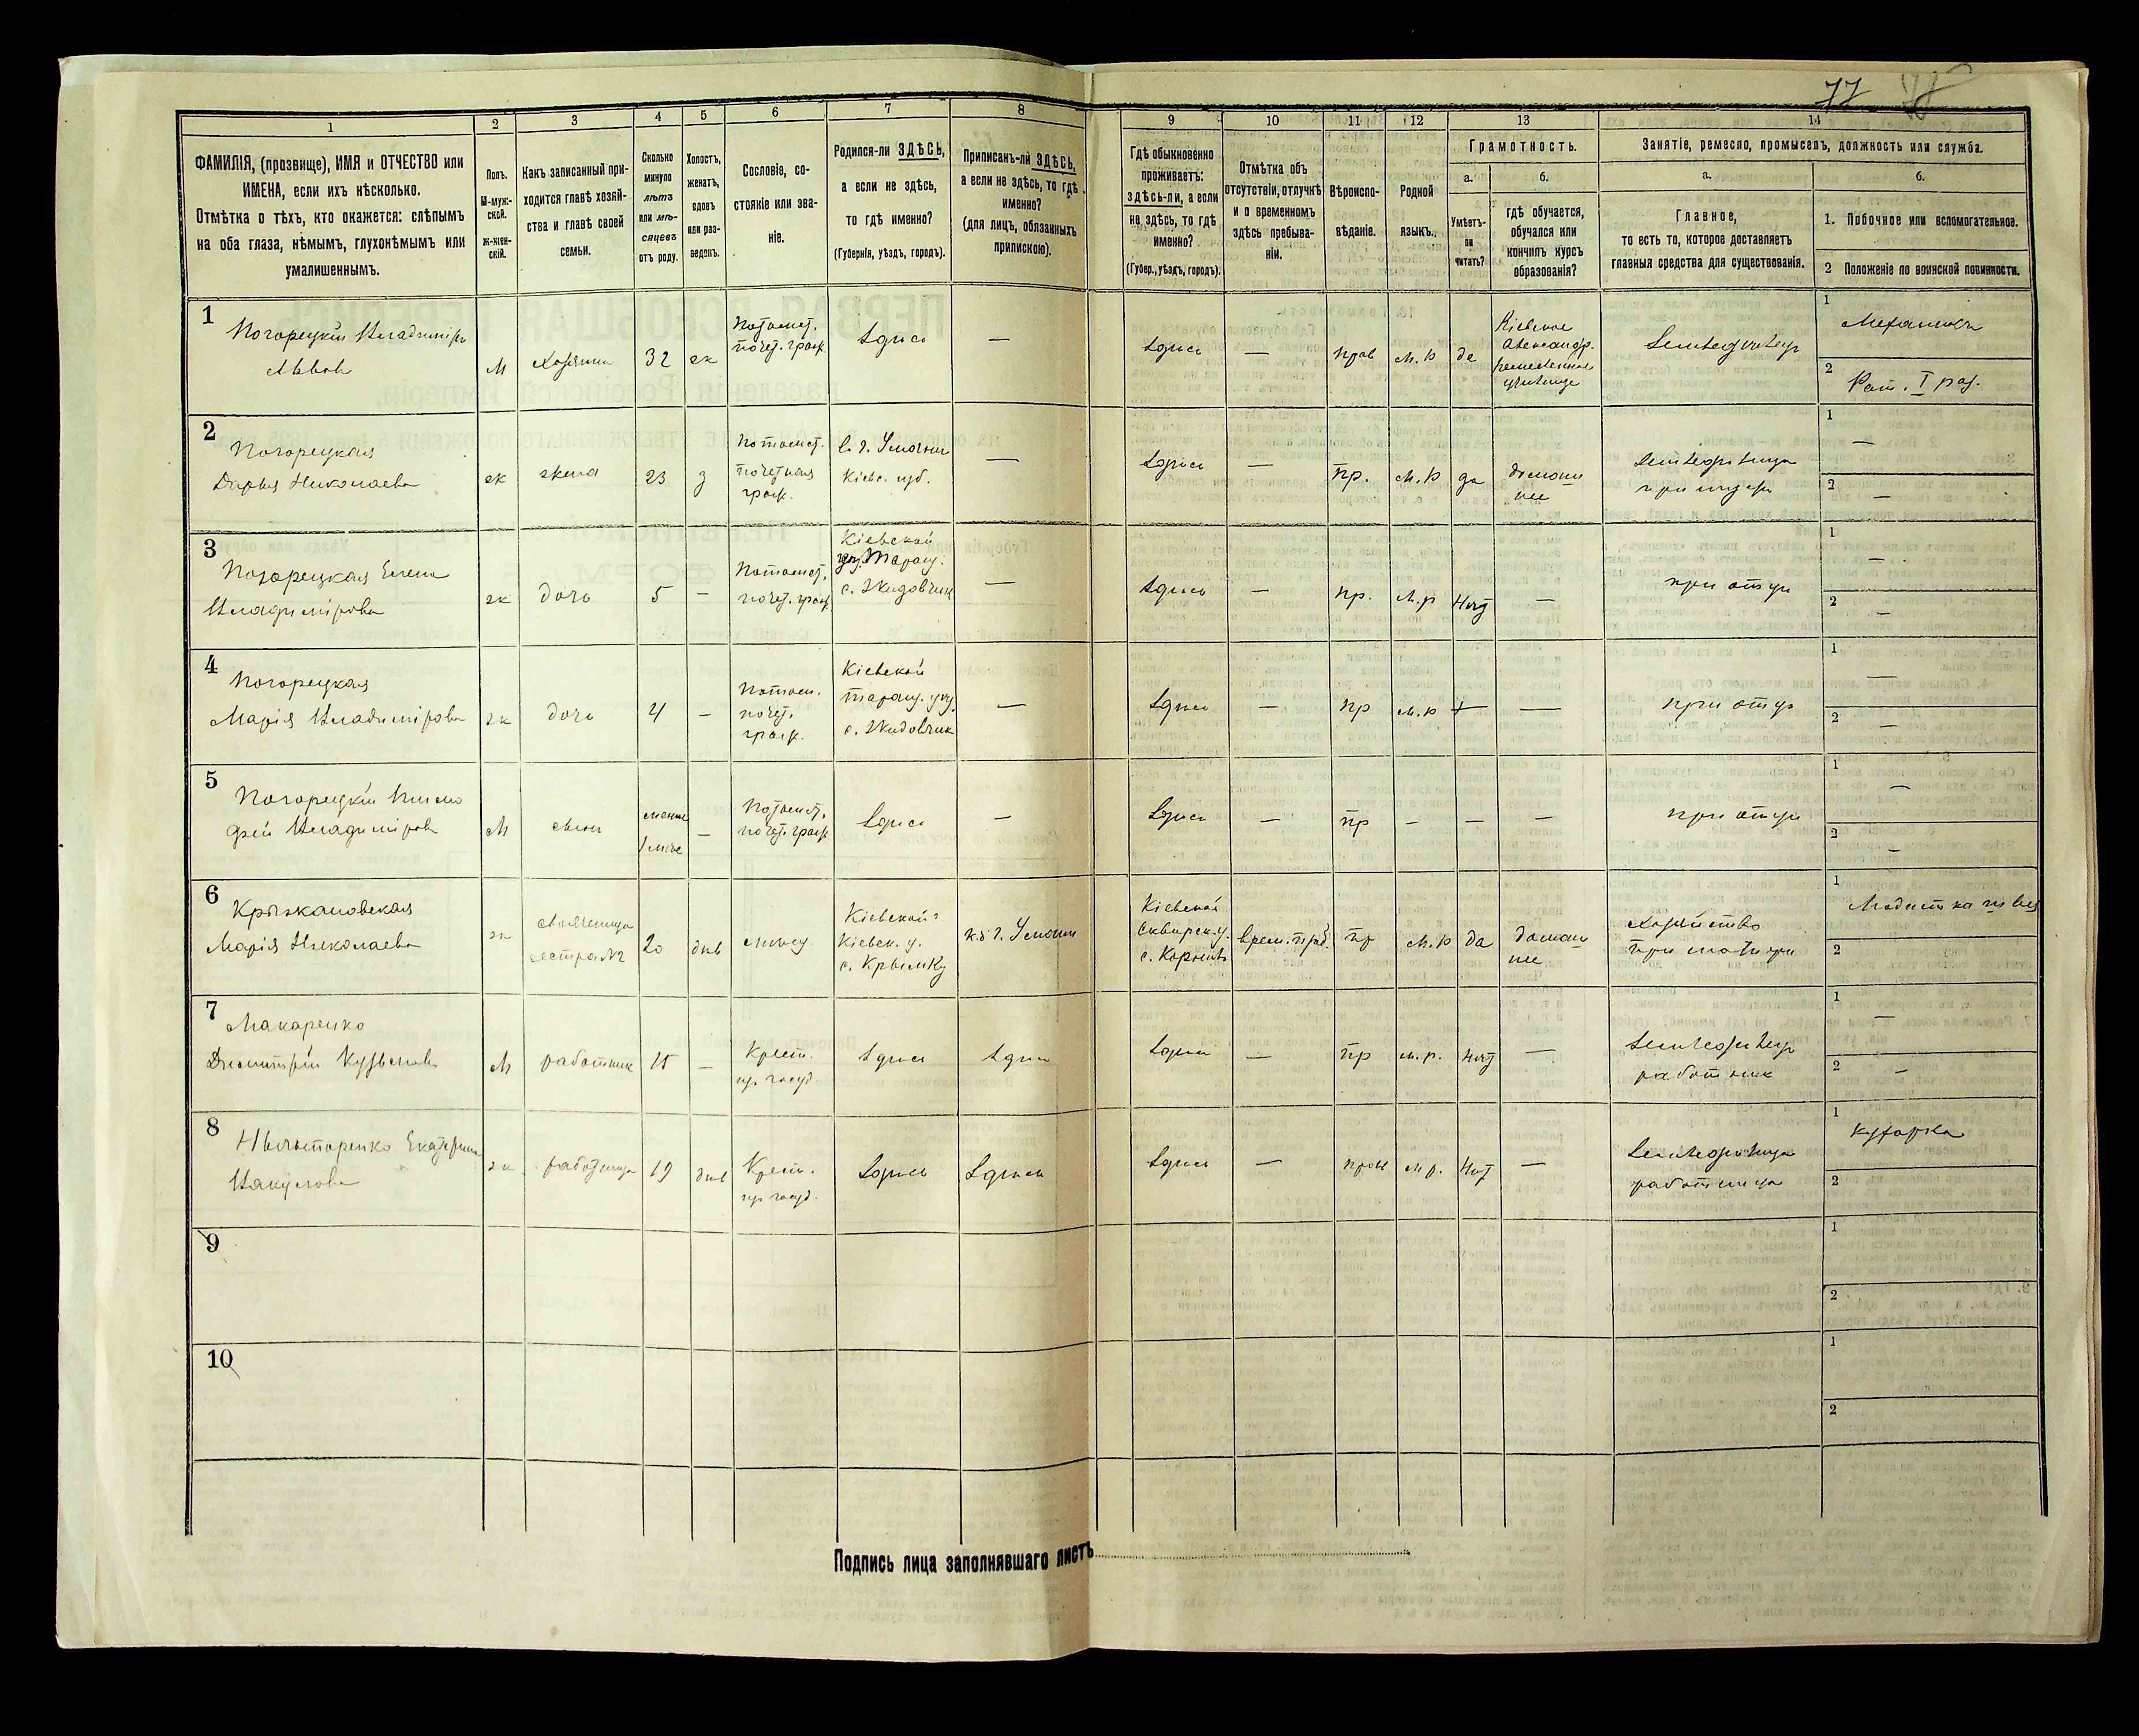 77
1
2
3
4
5
6
7
8
9
10
11
12
13
14
ФАМИЛІЯ, (прозвище), ИМЯ и ОТЧЕСТВО или
ИМЕНА, если ихъ нѣсколько.
Отмѣтка о тѣхъ, кто окажется: слѣпымъ
на оба глаза, нѣмымъ, глухонѣмымъ или
умалишеннымъ.
Полъ.
М-муж-
ской.
ж-жен-
скій.
Какъ записанный при-
ходится главѣ хозяй-
ства и главѣ своей
семьи.
Сколько
минуло
лѣтъ
или мѣ-
сяцевъ
отъ роду.
Холостъ,
женатъ,
вдовъ
или раз-
веденъ.
Сословіе, со-
стояніе или зва-
ніе.
Родился-ли ЗДѢСЬ,
а если не здѣсь,
то гдѣ именно?
(Губернія, уѣздъ, городъ).
Приписанъ-ли ЗДѢСЬ,
а если не здѣсь, то гдѣ
именно?
(для лицъ, обязанныхъ
припискою).
Гдѣ обыкновенно
проживаетъ:
ЗДѢСЬ-ли, а если
не здѣсь, то гдѣ
именно?
(Губер., уѣздъ, городъ).
Отмѣтка объ
отсутствіи, отлучкѣ
и о временномъ
здѣсь пребыва-
ніи.
Вѣроиспо-
вѣданіе.
Родной
языкъ.
Грамотность.
а.
Умѣетъ-
ли
читать?
б.
гдѣ обучается,
обучался или
кончилъ курсъ
образованія?
Занятіе, ремесло, промыселъ, должность или служба.
а.
Главное,
то есть то, которое доставляетъ
главныя средства для существованія.
б.
1. Побочное или вспомогательное.
2 Положеніе по воинской повинности.
1
Погорецкій Владиміръ
Львовъ
М
Хозяинъ
32
ж
Потомст.
почет. граж.
здѣсь
—
здѣсь
—
прав
м. р
да
Кіевское
Александр.
ремесленное
училище
Земледѣлецъ
1
2
Рат. I раз.
2
Погорецкая
Дарья Николаева
ж
жена
23
з
Потомст.
почетная
граж.
в. г. Умани
Кіевс. губ.
—
здѣсь
—
пр.
м. р
да
домаш
нее
1
—
2
—
3
Погорецкая Елена
Владимірова
ж
дочь
5
—
Потомст.
почет. граж.
Кіевской
Таращ.
с. Жидовчик
—
здѣсь
—
пр.
м. р
Нѣт
—
при отцѣ
1
—
2
—
4
Погорецкая
Марія Владимірова
ж
дочь
4
—
Потом.
почет.
граж.
Кіевской
Таращ. уѣз.
с. Жидовчик
—
здѣсь
—
пр
м. р
—
при отцѣ
1
—
2
—
5
Погорецкій Тимо
фей Владиміровъ
М
сынъ
менѣе
1 мѣс
—
Потомст.
почет. граж.
здѣсь
—
здѣсь
—
пр
—
—
—
при отцѣ
1
—
2
—
6
Крыжановская
Марія Николаева
ж
свояченица
сестра №2
20
дѣв
Кіевской г
Кіевск. у.
къ г. Умани
Кіевской
Сквирск. у.
врем. преб.
пр
м. р
да
домаш
нее
1
2
7
Макаренко
Дмитрій Кузьмовъ
М
работник
15
—
Крест.
здѣсь
здѣсь
здѣсь
—
пр
м. р.
нѣт
—
Землѣдѣлецъ
работник
1
—
2
—
8
Екатерина
ж
работница
19
дѣв
Крест.
здѣсь
здѣсь
здѣсь
—
прав
м р.
Нѣт
—
работница
1
кухарка
2
9
1
2
10
1
2
Подпись лица заполнявшаго листъ